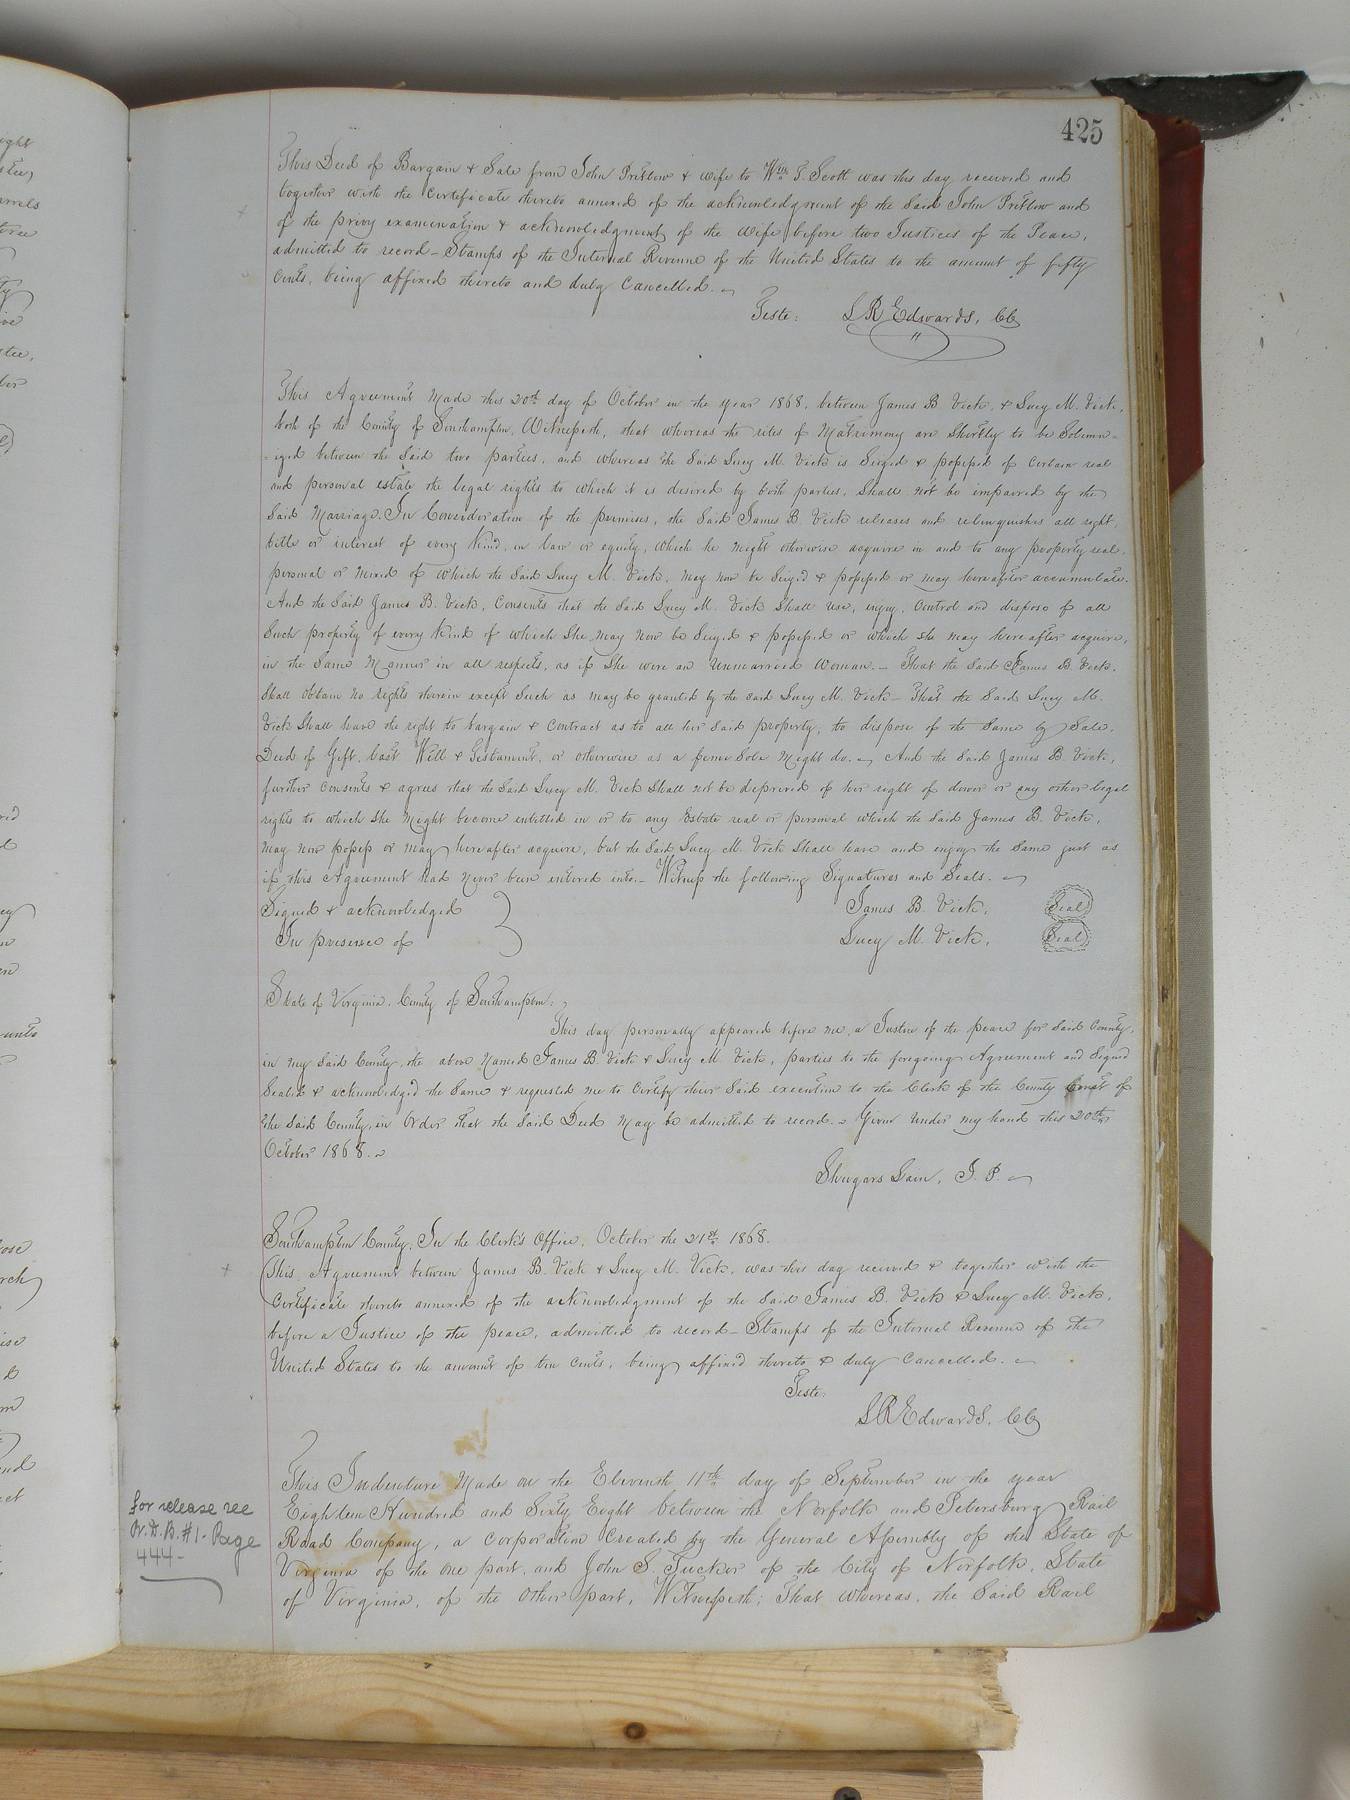 425
This Deed of Bargain & Sale from John Pretlow & wife to Wm. T. Scott was this day received and
together with the certificate thereto annexed of the acknowledgment of the said John Pretlow and
of the privy examination & acknowledgment of the wife before two Justices of the Peace,
admitted to record_ Stamps of the Internal Revenue of the United States to the amount of fifty
Cents, being affixed thereto and duly Cancelled.
Teste: L R Edwards, CC
This Agreement Made this 20th day of October in the year 1868, between James B. Vick, & Lucy M. Vick,
both of the County of Southampton, Witnesseth, that whereas the rites of Matrimony are Shortly to be Solemn=
=ized between the Said two parties, and whereas the Said Lucy M. Vick is Seized & possessed of Certain real
and personal estate the legal rights to which it is desired by both parties, Shall not be impaired by the
Said Marriage. In Consideration of the premises, the Said James B. Vick releases and relinquishes all right,
title or interest of every Kind, in law or equity, which he Might otherwise acquire in and to any property real,
personal or Mixed of which the Said Lucy M. Vick, May now be Seized & possessed or may hereafter accumulate.
And the Said James B. Vick, Consents that the Said Lucy M. Vick Shall use, enjoy, Control and dispose of all
Such property of every Kind of which She may Now be Seized & possessed or which she may hereafter acquire,
in the Same Manner in all respects, as if She were an Unmarried Woman._ That the Said James B. Vick,
Shall Obtain No rights therein except Such as may be granted by the said Lucy M. Vick_ That the Said Lucy M.
Vick Shall have the right to bargain & Contract as to all her Said property, to dispose of the Same by Sale,
Deed of Gift, last Will & Testament, or otherwise as a feme Sole Might do._ And the Said James B. Vick,
further Consents & agrees that the Said Lucy M. Vick Shall not be deprived of her right of dower or any other legal
rights to which She Might become entitled in or to any Estate real or personal which the Said James B. Vick,
may now possess or may hereafter acquire, but the Said Lucy M. Vick Shall have and enjoy the Same just as
if this Agreement had Never been entered into._ Witness the following Signatures and Seals.
Signed & acknowledged James B. Vick, Seal
In presence of Lucy M. Vick, Seal
State of Virginia, County of Southampton:
This day personally appeared before me, a Justice of the peace for Said County,
in my Said County, the above Named James B. Vick & Lucy M. Vick, parties to the foregoing Agreement and Signed
Sealed & acknowledged the Same & requested me to Certify their Said execution to the Clerk of the County Court of
the Said County, in Order that the Said Deed May be admitted to record._ Given Under my hand this 20th
October 1868.
Shugars Lain, J. P.
Southampton County, In the Clerk's Office, October the 21st 1868.
This Agreement between James B. Vick & Lucy M. Vick, was this day received & together with the
Certificate thereto annexed of the acknowledgment of the Said James B. Vick & Lucy M. Vick,
before a Justice of the peace, admitted to record_ Stamps of the Internal Revenue of the
United States to the amount of ten Cents, being affixed thereto & duly Cancelled.
Teste:
L R Edwards, CC
This Indenture Made on the Eleventh 11th day of September in the year
Eighteen Hundred and Sixty Eight between the Norfolk and Petersburg Rail
Road Company, a Corporation Created by the General Assembly of the State of
Virginia of the one part, and John S. Tucker of the City of Norfolk, State
of Virginia, of the Other part, Witnesseth; That whereas, the Said Rail
for release see
Or. D. B. #1 - Page
444-